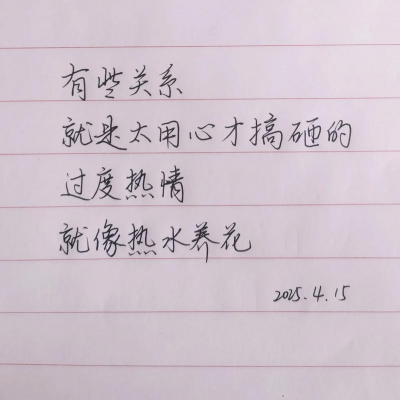 有些关系
就是太用心才搞砸的
过度热情
就像热水养花
2025.4.15